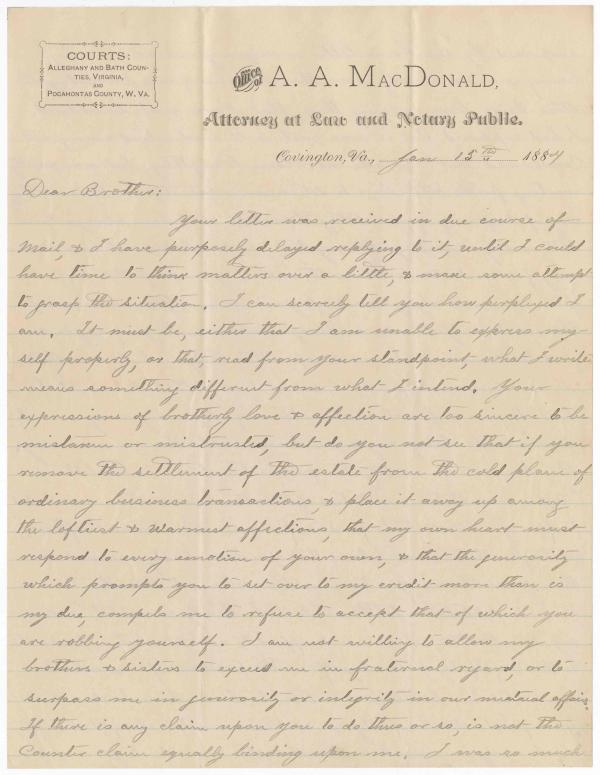 COURTS:
ALLEGHANY AND BATH COUN-
TIES, VIRGINIA,
AND
POCAHONTAS COUNTY, W. VA.
Office of A. A. MACDONALD,
Attorney at Law and Notary Public.
Covington, Va., Jan 15th 1884
Dear Brother:
Your letter was received in due course of
mail, & I have purposely delayed replying to it, until I could
have time to think matters over a little, & make some attempt
to grasp the situation. I can scarcely tell you how perplexed I
am. It must be, either that I am unable to express my-
self properly, or that, read from your standpoint, what I write
means something different from what I intend. Your
expressions of brotherly love & affection are too sincere to be
mistaken or mistrusted, but do you not see that if you
remove the settlement of the estate from the cold plane of
ordinary business transactions, & place it away up among
the loftiest & warmest affections, that my own heart must
respond to every emotion of your own, & that the generosity
which prompts you to set over to my credit more than is
my due, compels me to refuse to accept that of which you
are robbing yourself. I am not willing to allow my
brothers & sisters to exceed me in fraternal regard, or to
surpass me in generosity or integrity in our mutual affairs.
If there is any claim upon you to do thus or so, is not the
Counter claim equally binding upon me. I was so much